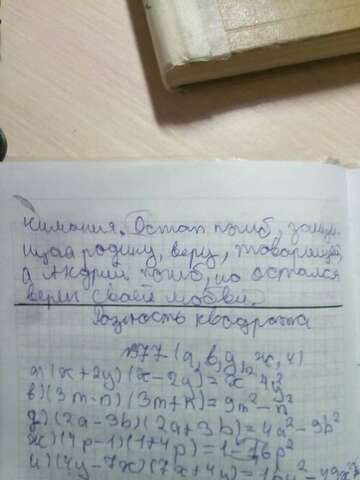 нимания. Остап погиб, защи-
щая родину, веру, товарищей,
а Андрий погиб, но остался
верен своей любви.
Разность квадрата
№977 (а, в, д, ж, и)
а) (x + 2y) (x - 2y) = x² - 4y²
в) (3m - n) (3m + n) = 9m² - n²
д) (2a - 3b) (2a + 3b) = 4a² - 9b²
ж) (4p - 1) (1 + 4p) = 1 - 16p²
и) (4y - 7x) (7x + 4y) = 16y² - 49x²